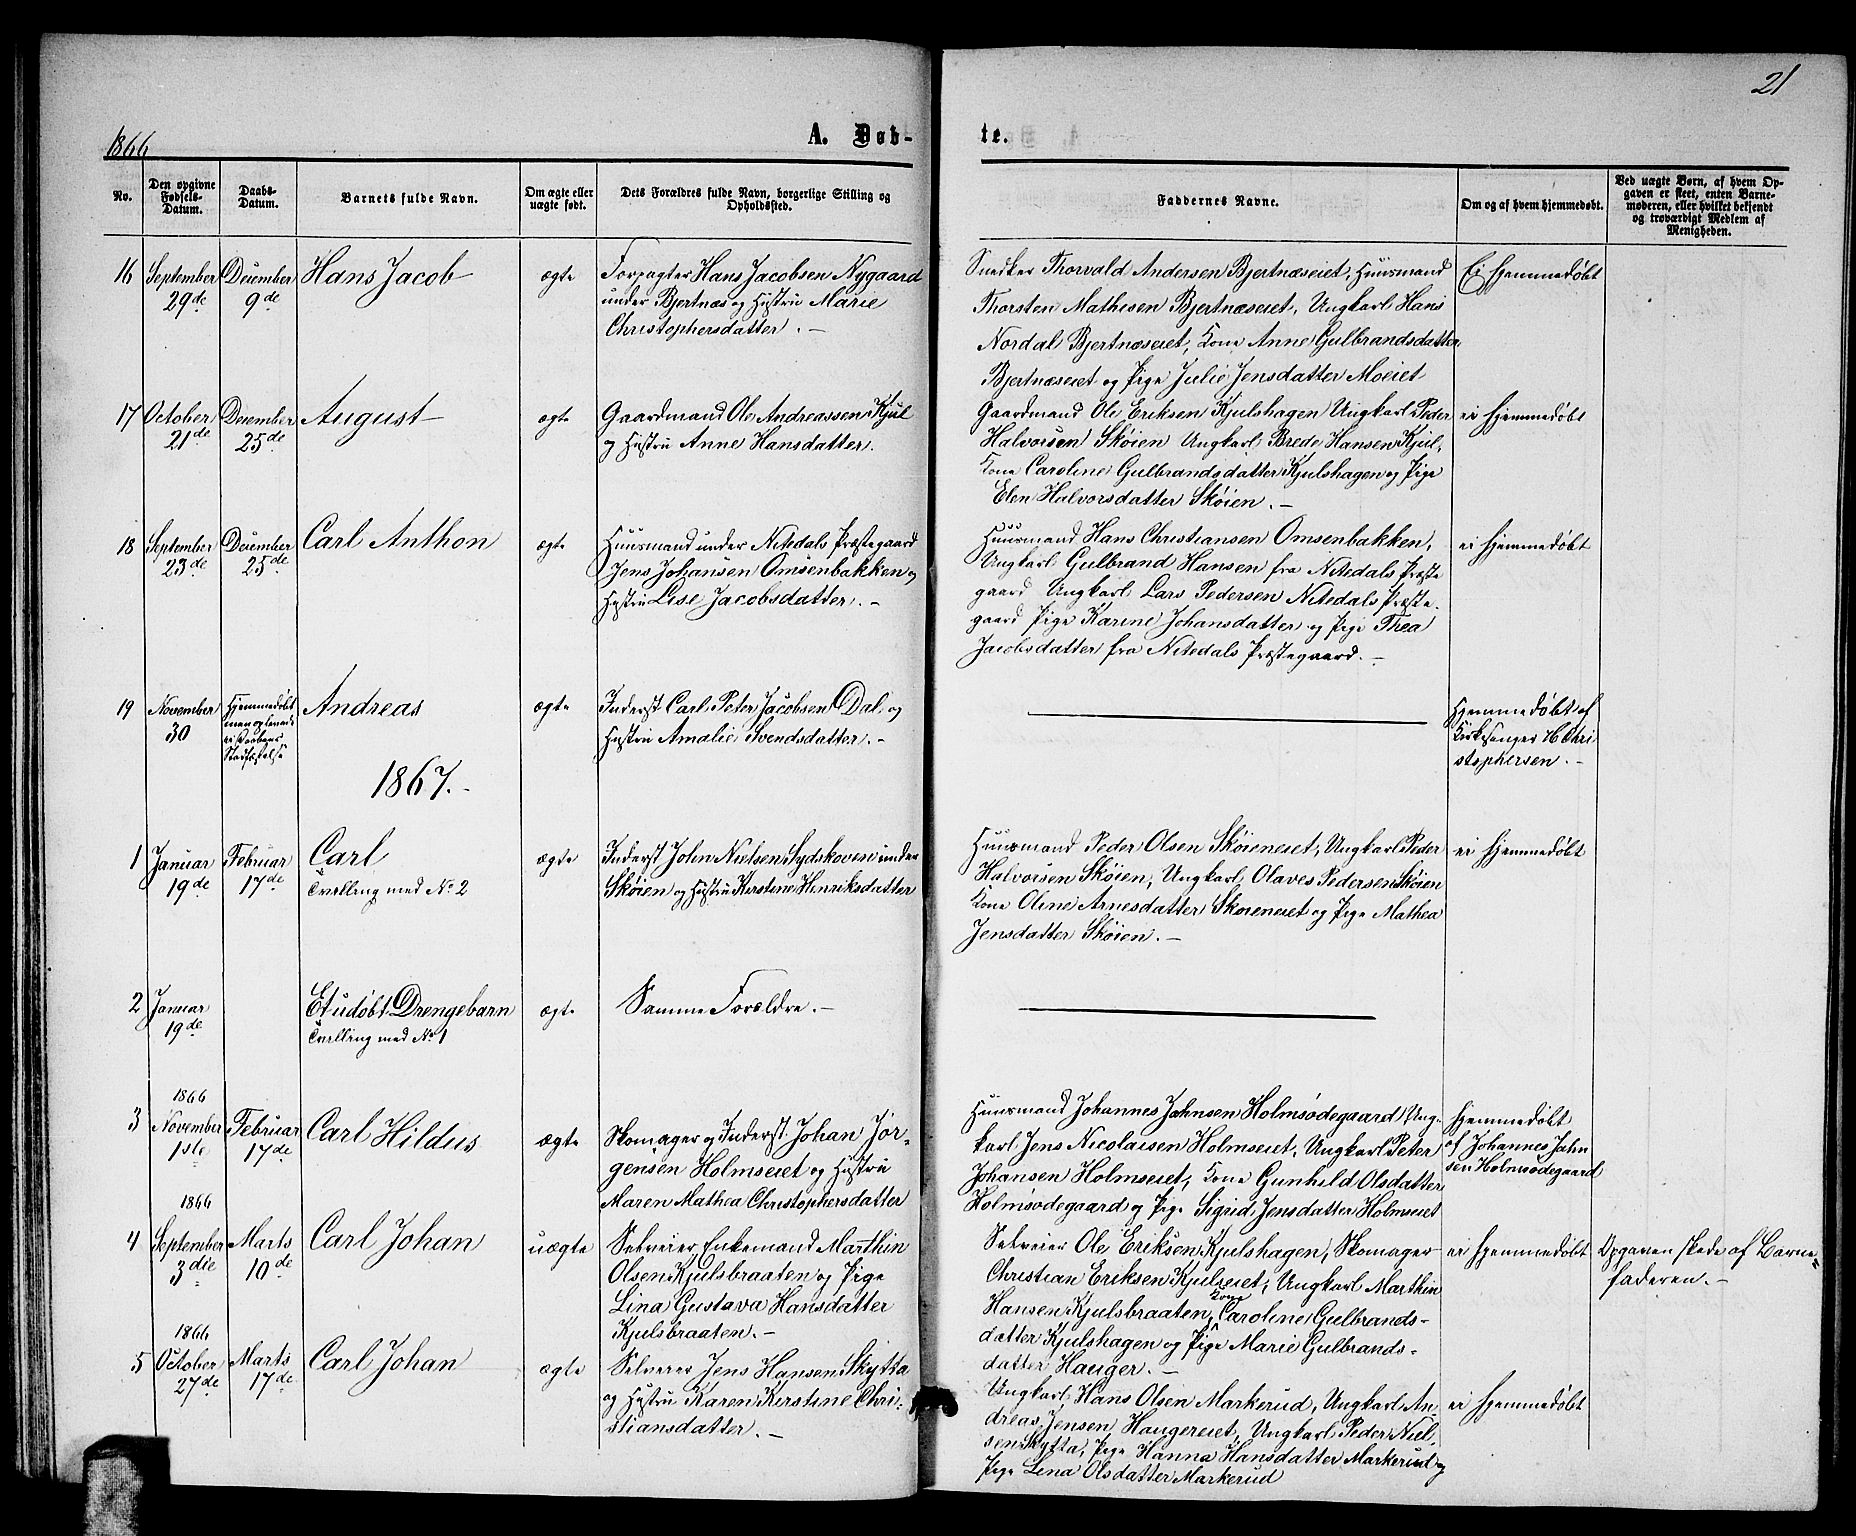 21
1866
A. Døb-
te.
No.
Den opgivne
Fødsels-
Datum.
Daabs-
Datum.
Barnets fulde Navn.
Om ægte eller
uægte født.
Dets Forældres fulde Navn, borgerlige Stilling og
Opholdssted.
Faddernes Navne.
Om og af hvem hjemmedøbt.
Ved uægte Børn, af hvem Op-
gaven er skeet, enten Barne-
moderen, eller hvilket bekjendt
og troværdigt Medlem af
Menigheden.
16
September
29de
December
9de
Hans Jacob
ægte
Forpagter Hans Jacobsen Nygaard
under Bjertnæs og Hustru Marie
Christophersdatter. -
Snedker Thorvald Andersen Bjertnæseiet, Huusmand
Thorsten Mathisen Bjertnæseiet, Ungkarl Hans
Nordal Bjertnæseiet, Kone Anne Gulbrandsdatter
Bjertnæseiet og Pige Julie Jensdatter Moeiet
Ei hjemmedøbt
17
October
21de
December
25de
August
ægte
Gaardmand Ole Andreassen Kjul
og Hustru Anne Hansdatter.
Gaardmand Ole Eriksen Kjulshagen, Ungkarl Peder
Halvorsen Skøien Ungkarl Brede Hansen Kjul,
Kone Caroline Gulbrandsdatter Kjulshagen og Pige
Elen Halvorsdatter Skøien. -
ei hjemmedøbt
18
September
23de
December
25de
Carl Anthon
ægte
Huusmand under Nitedals Præstegaard
Jens Johansen Omsenbakken og
Hustru Lise Jacobsdatter. -
Huusmand Hans Christiansen Omsenbakken,
Ungkarl Gulbrand Hansen fra Nitedals Præste
gaard Ungkarl Lars Pedersen Nitedals Præste-
gaard Pige Karine Johansdatter og Pige Thea
Jacobsdatter fra Nitedals Præstegaard. -
ei hjemmedøbt
19
November
30
Hjemmedøbt
men oplevede
ei Daabens
Stadfæstelse
Andreas
ægte
Inderst Carl Peter Jacobsen Dal og
Hustru Amalie Svendsdatter. -
Hjemmedøbt af
Kirkesanger H Chri
stophersen. -
1867. -
1
Januar
19de
Februar
17de
Carl
Tvilling med No 2
ægte
Inderst John Nielsen Sydskoven under
Skøien og Hustru Kirstine Henriksdatter
Huusmand Peder Olsen Skøieneiet, Ungkarl Peder
Halvorsen Skøien, Ungkarl Olaves Pedersen Skøien
Kone Oline Arnesdatter Skøieneiet og Pige Mathea
Jensdatter Skøien. -
ei hjemmedøbt
2
Januar
19de
Et udøbt Drengebarn
Tvilling med No 1
ægte
Samme Forældre. -
3
1866
November
1ste
Februar
17de
Carl Hildus
ægte
Skomager og Inderst Johan Jør-
gensen Holmseiet og Hustru
Maren Mathea Christophersdatter
Huusmand Johannes Jahnsen Holmsødegaard, Ung-
karl Jens Nicolaisen Holmseiet, Ungkarl Peter
Johansen Holmseiet, Kone Gunhild Olsdatter
Holmsødegaard og Pige Sigrid Jensdatter Holmseiet
Hjemmedøbt
af Johannes Jahn
sen Holmsødegaard
4
1866
September
3die
Marts
10de
Carl Johan
uægte
Selveier, Enkemand Marthin
Olsen Kjulsbraaten og Pige
Lina Gustava Hansdatter
Kjulsbraaten. -
Selveier Ole Eriksen Kjulshagen, Skomager
Christian Eriksen Kjulseiet, Ungkarl Marthin
Hansen Kjulsbraaten, Kone Caroline Gulbrands-
datter Kjulshagen og Pige Marie Gulbrands-
datter Hauger. -
ei hjemmedøbt
Opgaven skede af Barne-
faderen. -
5
1866
October
27de
Marts
17de
Carl Johan
ægte
Selveier Jens Hansen Skytta
og Hustru Karen Kirstine Chri-
stiansdatter. -
Ungkarl Hans Olsen Markerud, Ungkarl An
dreas Jensen Haugereiet, Ungkarl Peder Niel-
sen Skytta, Pige Hanna Hansdatter Markerud og
Pige Lina Olsdatter Markerud
ei hjemmedøbt